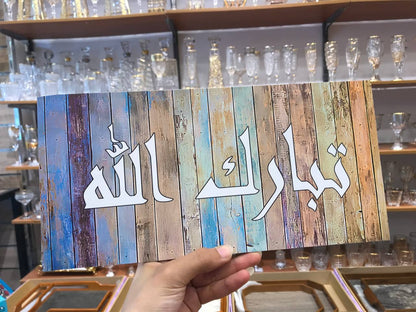 تبارك الله